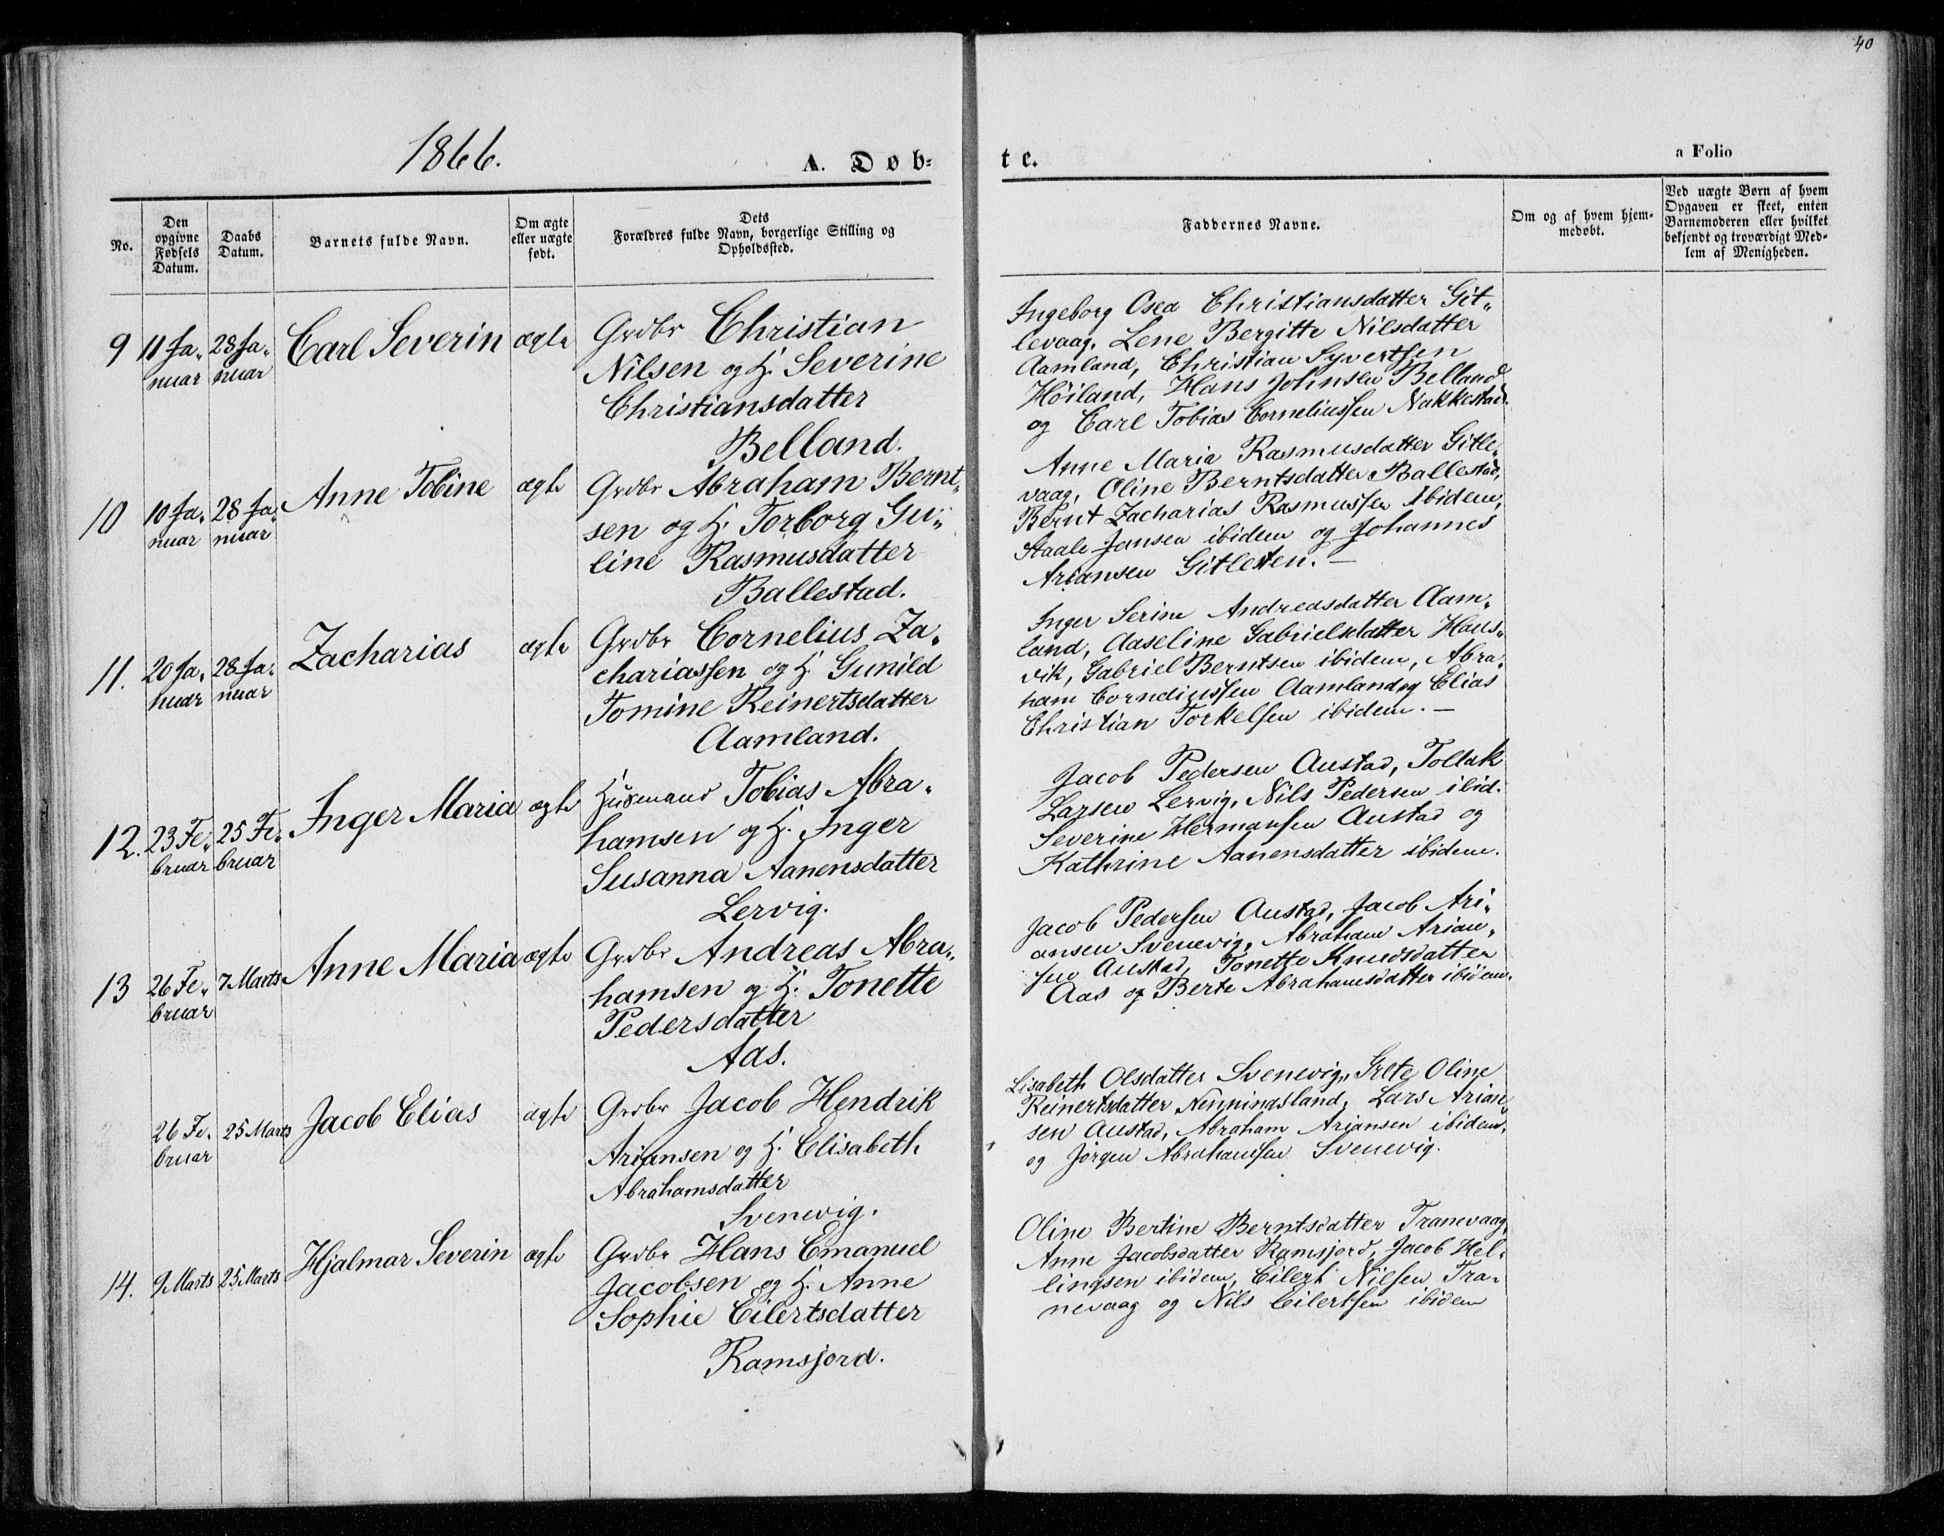 40
1866.
A. Døb-
te.
a Folio
No.
Den
opgivne
Fødsels
Datum.
Daabs
Datum.
Barnets fulde Navn.
Om ægte
eller uægte
født.
Dets
Forældres fulde Navn, borgerlige Stilling og
Opholdssted.
Faddernes Navne.
Om og af hvem hjem-
medøbt.
Ved uægte Børn af hvem
Opgaven er skeet, enten
Barnemoderen eller hvilket
bekjendt og troværdigt Med-
lem af Menigheden.
9
11 Ja-
nuar
28 Ja-
nuar
Carl Severin
ægte
Grdbr Christian
Nilsen og H. Severine
Christiansdatter
Belland.
Ingeborg Osea Christiansdatter Git-
levaag, Lene Bergitte Nilsdatter
Aamland, Christian Syvertsen
Høiland, Hans Johnsen Belland
og Carl Tobias Corneliussen Nakkestad.
10
10 Ja-
nuar
28 Ja-
nuar
Anne Tobine
ægte
Grdbr Abraham Bernt-
sen og H. Torborg Gu-
line Rasmusdatter
Ballestad.
Anne Maria Rasmusdatter Gitle-
vaag, Oline Berntsdatter Ballestad,
Bernt Zacharias Rasmussen ibidem,
Staale Jansen ibidem og Johannes
Ariansen Gitlesten. —
11.
20 Ja-
nuar
28 Ja-
nuar
Zacharias
ægte
Grdbr Cornelius Za-
chariassen og H. Gunild
Tomine Reinertsdatter
Aamland.
Inger Serine Andreasdatter Aam-
land, Aaseline Gabrielsdatter Haus-
vik, Gabriel Berntsen ibidem, Abra-
ham Corneliussen Aamland og Elias
Christian Torkelsen ibidem. —
12.
23 Fe-
bruar
25 Fe-
bruar
Inger Maria
ægte
Husmand Tobias Abra-
hamsen og H. Inger
Susanna Aanensdatter
Lervig.
Jacob Pedersen Austad, Tollak
Larsen Lervig, Nils Pedersen ibid.
Severine Hermansen Austad og
Kathrine Aanensdatter ibidem.
13
26 Fe-
bruar
7 Marts
Anne Maria
ægte
Grdbr Andreas Abra-
hamsen og H. Tonette
Pedersdatter
Aas.
Jacob Pedersen Austad, Jacob Ari-
ansen Svenevig, Abraham Arian-
sen Austad, Tonette Knudsdatter
Aas og Berte Abrahamsdatter ibidem.
26 Fe-
bruar
25 Marts
Jacob Elias
ægte
Grdbr Jacob Hendrik
Ariansen og H. Elisabeth
Abrahamsdatter
Svenevig.
Lisabeth Olsdatter Svenevig, Grete Oline
Reinertsdatter Nenningsland, Lars Arian-
sen Austad, Abraham Ariansen ibidem,
og Jørgen Abrahamsen Svenevig.
14.
9 Marts
25 Marts
Hjalmar Severin
ægte
Grdbr Hans Emanuel
Jacobsen og H. Anne
Sophie Eilertsdatter
Ramsjord.
Oline Bertine Berntsdatter Tranevaag,
Anne Jacobsdatter Ramsjord, Jacob Hel-
lingsen ibidem, Eilert Nilsen Tra-
nevaag og Nils Eilertsen ibidem